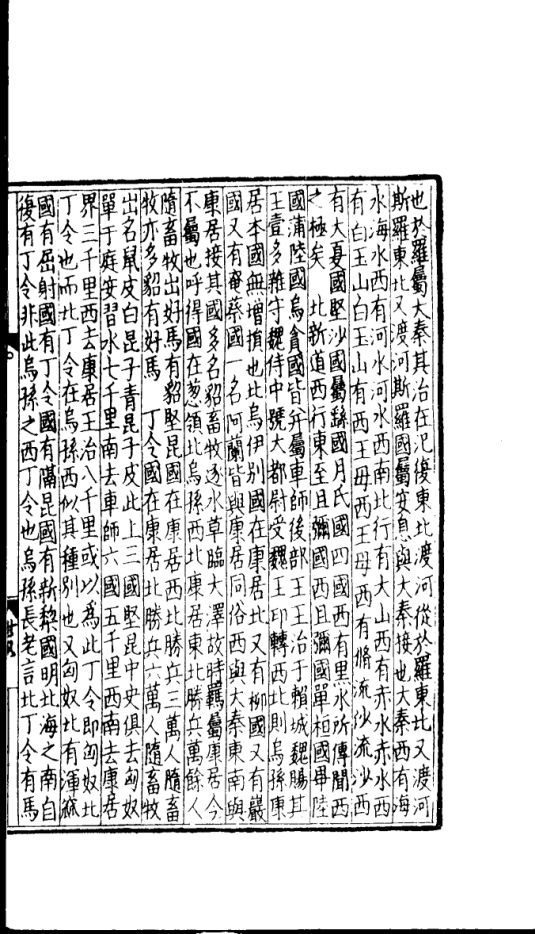 也於羅屬大秦其治在汜復東北渡河從於羅東北又渡河
斯羅東北又渡河斯羅國屬安息與大秦接也大秦西有海
水海水西有河水河水西南北行有大山西有赤水赤水西
有白玉山白玉山有西王母西王母西有脩流沙流沙西
有大夏國堅沙國屬繇國月氏國四國西有黑水所傳聞西
之極矣 北新道西行東至且彌國西且彌國單桓國畢陸
國蒲陸國烏貪國皆并屬車師後部王王治于賴城魏賜其
王壹多雜守魏侍中號大都尉受魏王印轉西北則烏孫康
居本國無增損也北烏伊別國在康居北又有柳國又有巖
國又有奄蔡國一名阿蘭皆與康居同俗西與大秦東南與
康居接其國多名貂畜牧逐水草臨大澤故時羈屬康居今
不屬也呼得國在葱領北烏孫西北康居東北勝兵萬餘人
隨畜牧出好馬有貂堅昆國在康居西北勝兵三萬人隨畜
牧亦多貂有好馬 丁令國在康居北勝兵六萬人隨畜牧
出名鼠皮白昆子青昆子皮此上三國堅昆中史俱去匈奴
單于庭安習水七千里南去車師六國五千里西南去康居
界三千里西去康居王治八千里或以為此丁令即匈奴北
丁令也而北丁令在烏孫西似其種別也又匈奴北有渾窳
國有屈射國有丁令國有隔昆國有新棃國明北海之南自
復有丁令非此烏孫之西丁令也烏孫長老言北丁令有馬